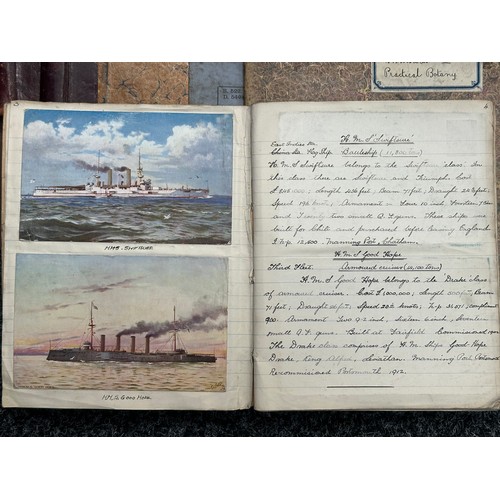 Practical Botany
5
6
H.M.S. Swiftsure
H.M.S. Good Hope.
"H.M.S. Swiftsure"
East Indies Stn.
Flag Ship Battleship (11,800 tons)
H.M.S Swiftsure belongs to the Swift class. In
this class there are Swiftsure and Triumph. Cost
£ ; Length 436 feet; Beam 71 feet; Draught
Speed knots; Armament is Four 10 inch Fourteen
and Twenty two small Q.F guns. These ships were
built for Chile and purchased before leaving England
I.H.p. 12,500. Manning Port, Chatham.
H.M.S Good Hope
Third Fleet. Armoured cruiser (14,100 tons)
H.M.S Good Hope belongs to the Drake class
of armoured cruiser. Cost £1,000,000; Length 500 feet; Beam
71 feet; Draught feet; Speed knots; I.H.p 31,071; Compliment
900. Armament Two 9.2 inch, sixteen 6 inch, seventeen
small Q.F guns. Built at Fairfield Commissioned
The Drake class comprises of H.M. Ships Good Hope
Drake, King Alfred, Leviathan. Manning Port Portsmouth
Recommissioned Portsmouth 1912.